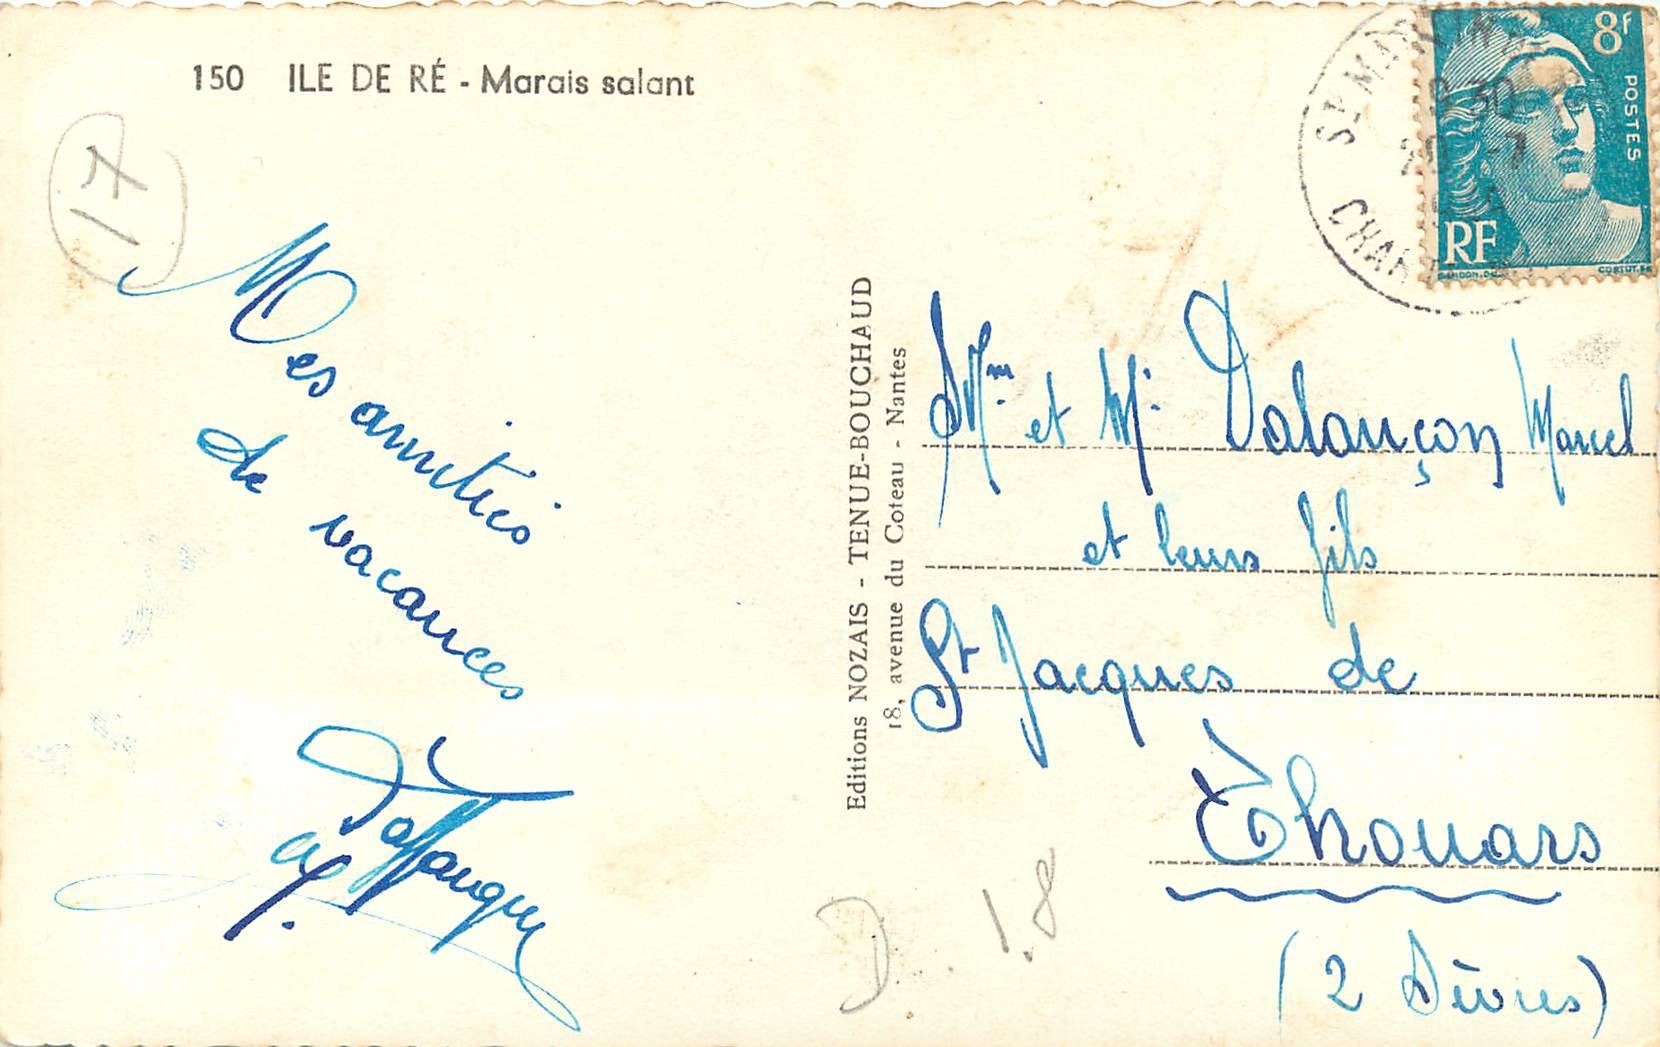 150 ILE DE RÉ - Marais salant
17
Mes amitiés
de vacances
Editions NOZAIS - TENUE-BOUCHAUD
18, avenue du Coteau - Nantes
8f
POSTES
RF
GANDON.DEL
CORTOT.SC
ST MARTIN
9 30
20 -7
CHAR
Mme et Mr Dalançon Marcel
et leurs fils
St Jacques de
Thouars
(2 Sèvres)
D. 1.8